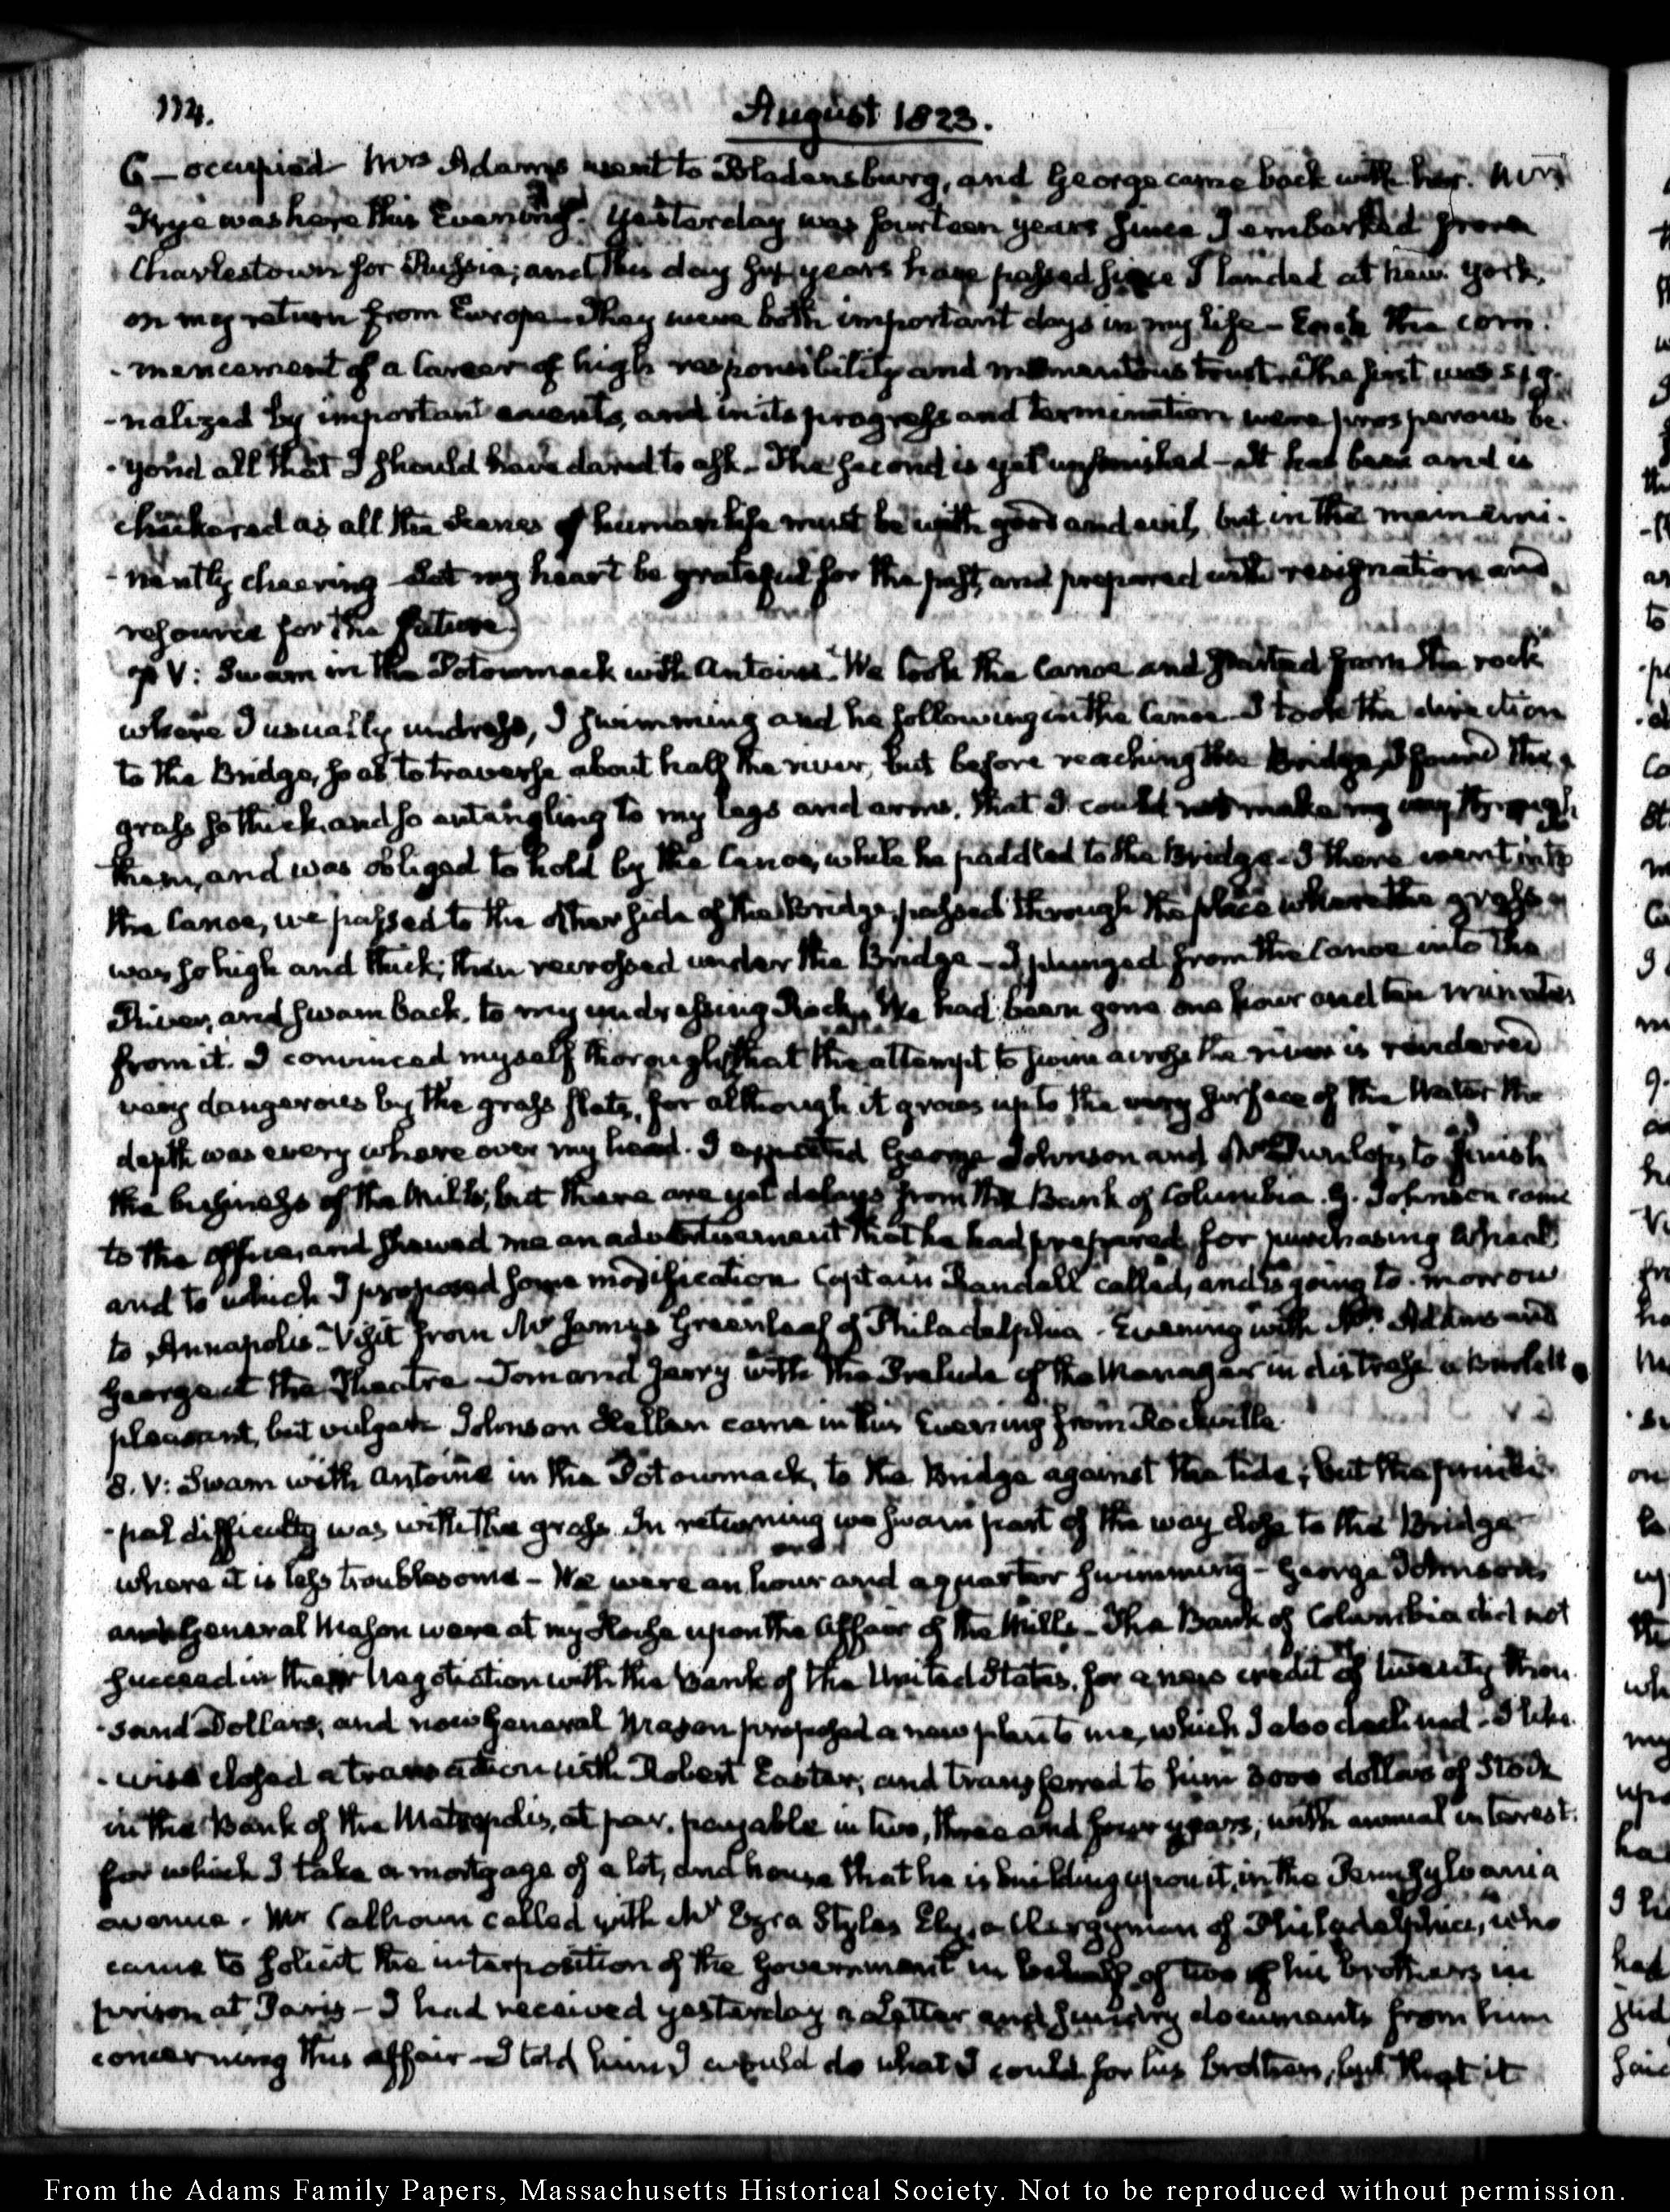 114.
August 1823.
6 — occupied Mrs Adams went to Bladensburg, and George came back with her. Mrs
Frye was here this Evening. Yesterday was fourteen years since I embarked from
Charlestown for Russia; and this day six years have passed since I landed at New York,
on my return from Europe — They were both important days in my life — Each the com-
-mencement of a Career of high responsibility and momentous trust. The first was sig-
-nalized by important events, and in its progress and termination were prosperous be-
-yond all that I should have dared to ask — The second is yet unfinished — It has been and is
checkered as all the Scenes of human life must be with good and evil, but in the main emi-
-nently cheering — Let my heart be grateful for the past, and prepared with resignation and
resource for the future.
7. V: Swam in the Potowmack with Antoine. We took the Canoe and started from the rock
where I usually undress, I swimming and he following in the Canoe. I took the direction
to the Bridge, so as to traverse about half the river, but before reaching the Bridge, I found the
grass so thick, and so entangling to my legs and arms, that I could not make my way through
them, and was obliged to hold by the Canoe, while he paddled to the Bridge. I there went into
the Canoe, we passed to the other side of the Bridge, passed through the place where the grass
was so high and thick; then recrossed under the Bridge — I plunged from the Canoe into the
River, and swam back, to my undressing Rock. We had been gone one hour and ten minutes
from it. I convinced myself thoroughly that the attempt to swim across the river is rendered
very dangerous by the grass flats, for although it grows up to the very surface of the Water the
depth was every where over my head. I expected George Johnson and Mr Dunlop, to finish
the business of the Mills; but there are yet delays from the Bank of Columbia. G. Johnson came
to the Office, and shewed me an advertisement that he had prepared, for purchasing Wheat
and to which I proposed some modification Captain Randall called, and is going to-morrow
to Annapolis — Visit from Mr James Greenleaf of Philadelphia. Evening with Mrs Adams and
George at the Theatre. Tom and Jerry with the Prelude of the Manager in distress a Burlett.
pleasant, but vulgar. Johnson Hellen came in this Evening from Rockville.
8. V: Swam with Antoine in the Potowmack, to the Bridge against the tide; but the princi-
-pal difficulty was with the grass. In returning we swam part of the way close to the Bridge
where it is less troublesome — We were an hour and a quarter swimming — George Johnson
and General Mason were at my House upon the Affair of the Mills — The Bank of Columbia did not
succeed in their Negotiation with the Bank of the United States, for a new credit of twenty thou-
-sand Dollars, and now General Mason proposed a new plan to me, which I also declined — I like-
-wise closed a transaction with Robert Easter, and transferred to him 3000 dollars of Stock
in the Bank of the Metropolis, at par, payable in two, three and four years; with annual interest:
for which I take a mortgage of a lot, and house that he is building upon it, in the Pennsylvania
avenue. Mr Calhoun called with Mr Ezra Styles Ely, a Clergyman of Philadelphia, who
came to solicit the interposition of the Government in behalf of two of his brothers in
prison at Paris — I had received yesterday a Letter and sundry documents from him
concerning this affair — I told him I would do what I could for his brothers, but that it
From the Adams Family Papers, Massachusetts Historical Society. Not to be reproduced without permission.